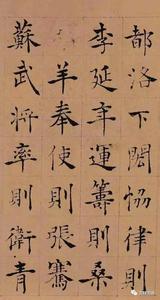 都洛下閎協律則
李延年運籌則桑
羊奉使則張騫
蘇武將率則衛青